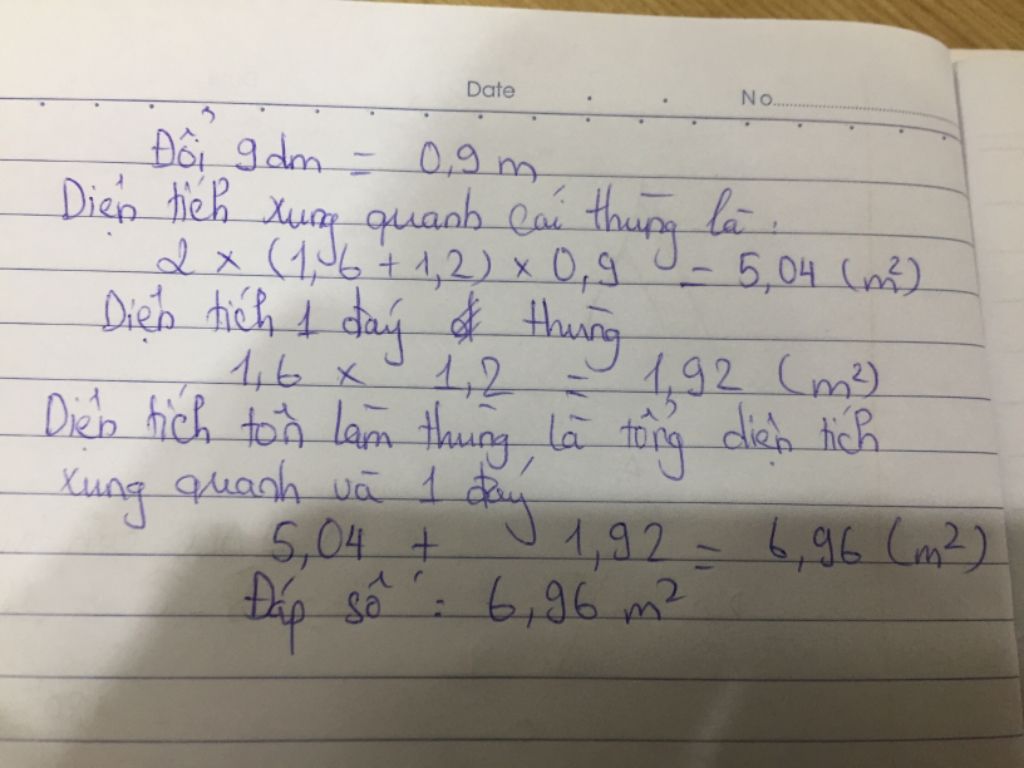 Date No
Đổi 9dm = 0,9 m
Diện tích xung quanh cái thùng là :
2 × (1,6 + 1,2) × 0,9 = 5,04 (m²)
Diện tích 1 đáy thùng
1,6 × 1,2 = 1,92 (m²)
Diện tích tôn làm thùng là tổng diện tích
xung quanh và 1 đáy
5,04 + 1,92 = 6,96 (m²)
Đáp số : 6,96 m²